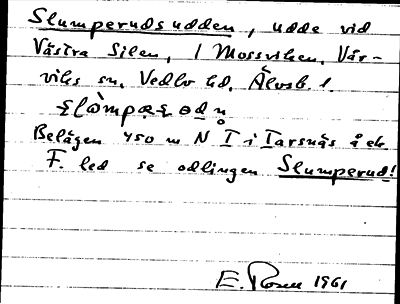 Slumperudsudden, udde vid
Västra Silen, i Mossviken, Vår-
viks sn, Vedbo hd, Älvsb. l.
Belägen 450 m N T i Tarsnäs å ek
F. led se odlingen Slumperud!
E. Rosen 1961